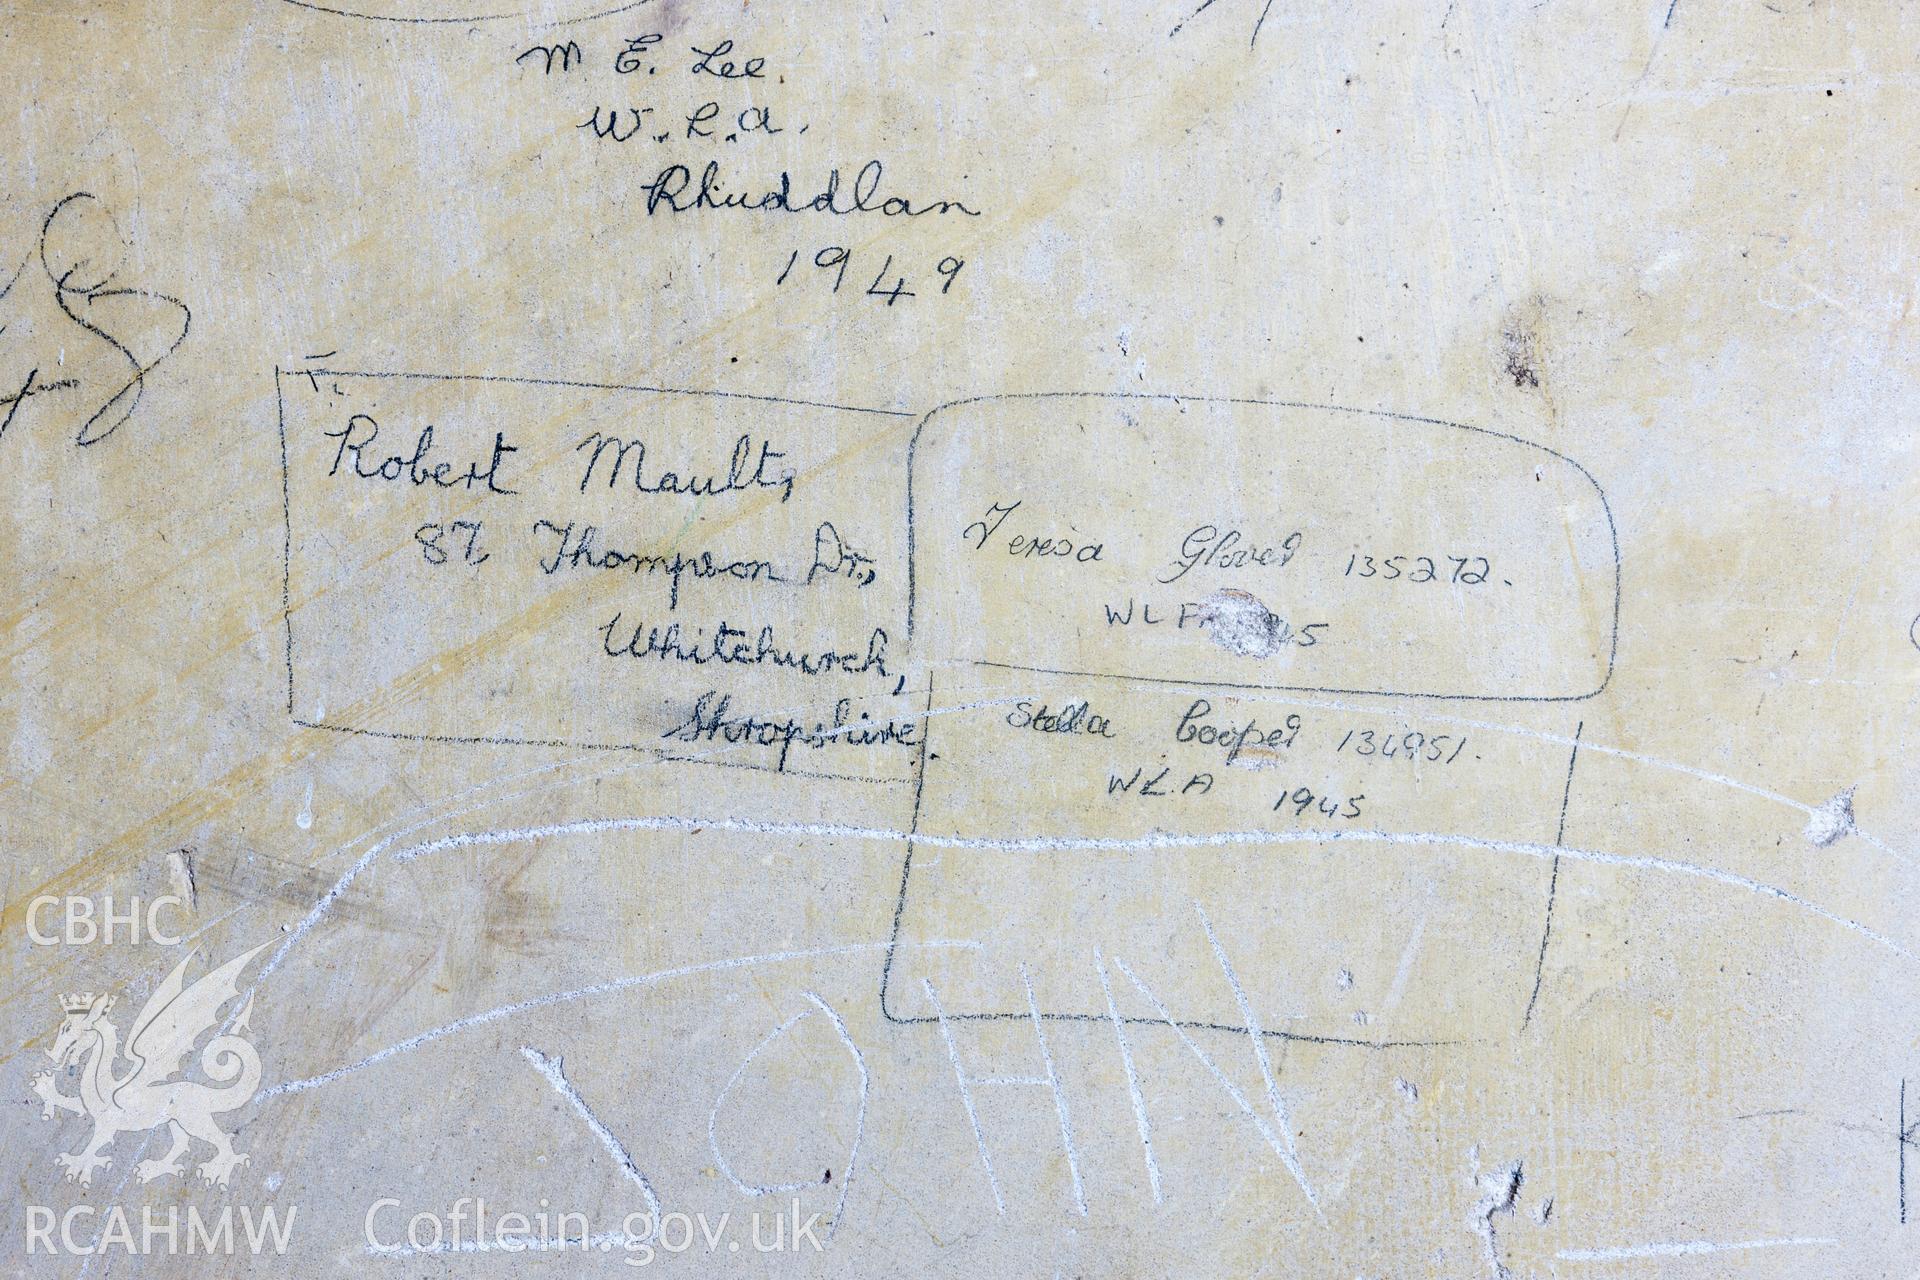 M. E. Lee.
W.L.A.
Rhuddlan
1949
Robert Mault,
87 Thompson Dr.,
Whitchurch,
Shropshire.
Teresa Glover 135272.
WL 45
Stella Cooper 134951.
W.L.A 1945
JOHN
CBHC
RCAHMW
Coflein.gov.uk